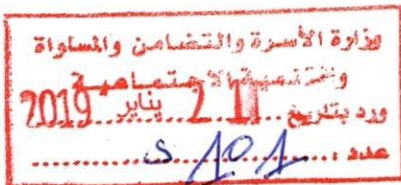 وزارة الأسرة والتضامن والمساواة
والتنمية الاجتماعية
ورد بتاريخ ..... يناير 2019
عدد : ..... 101 .....